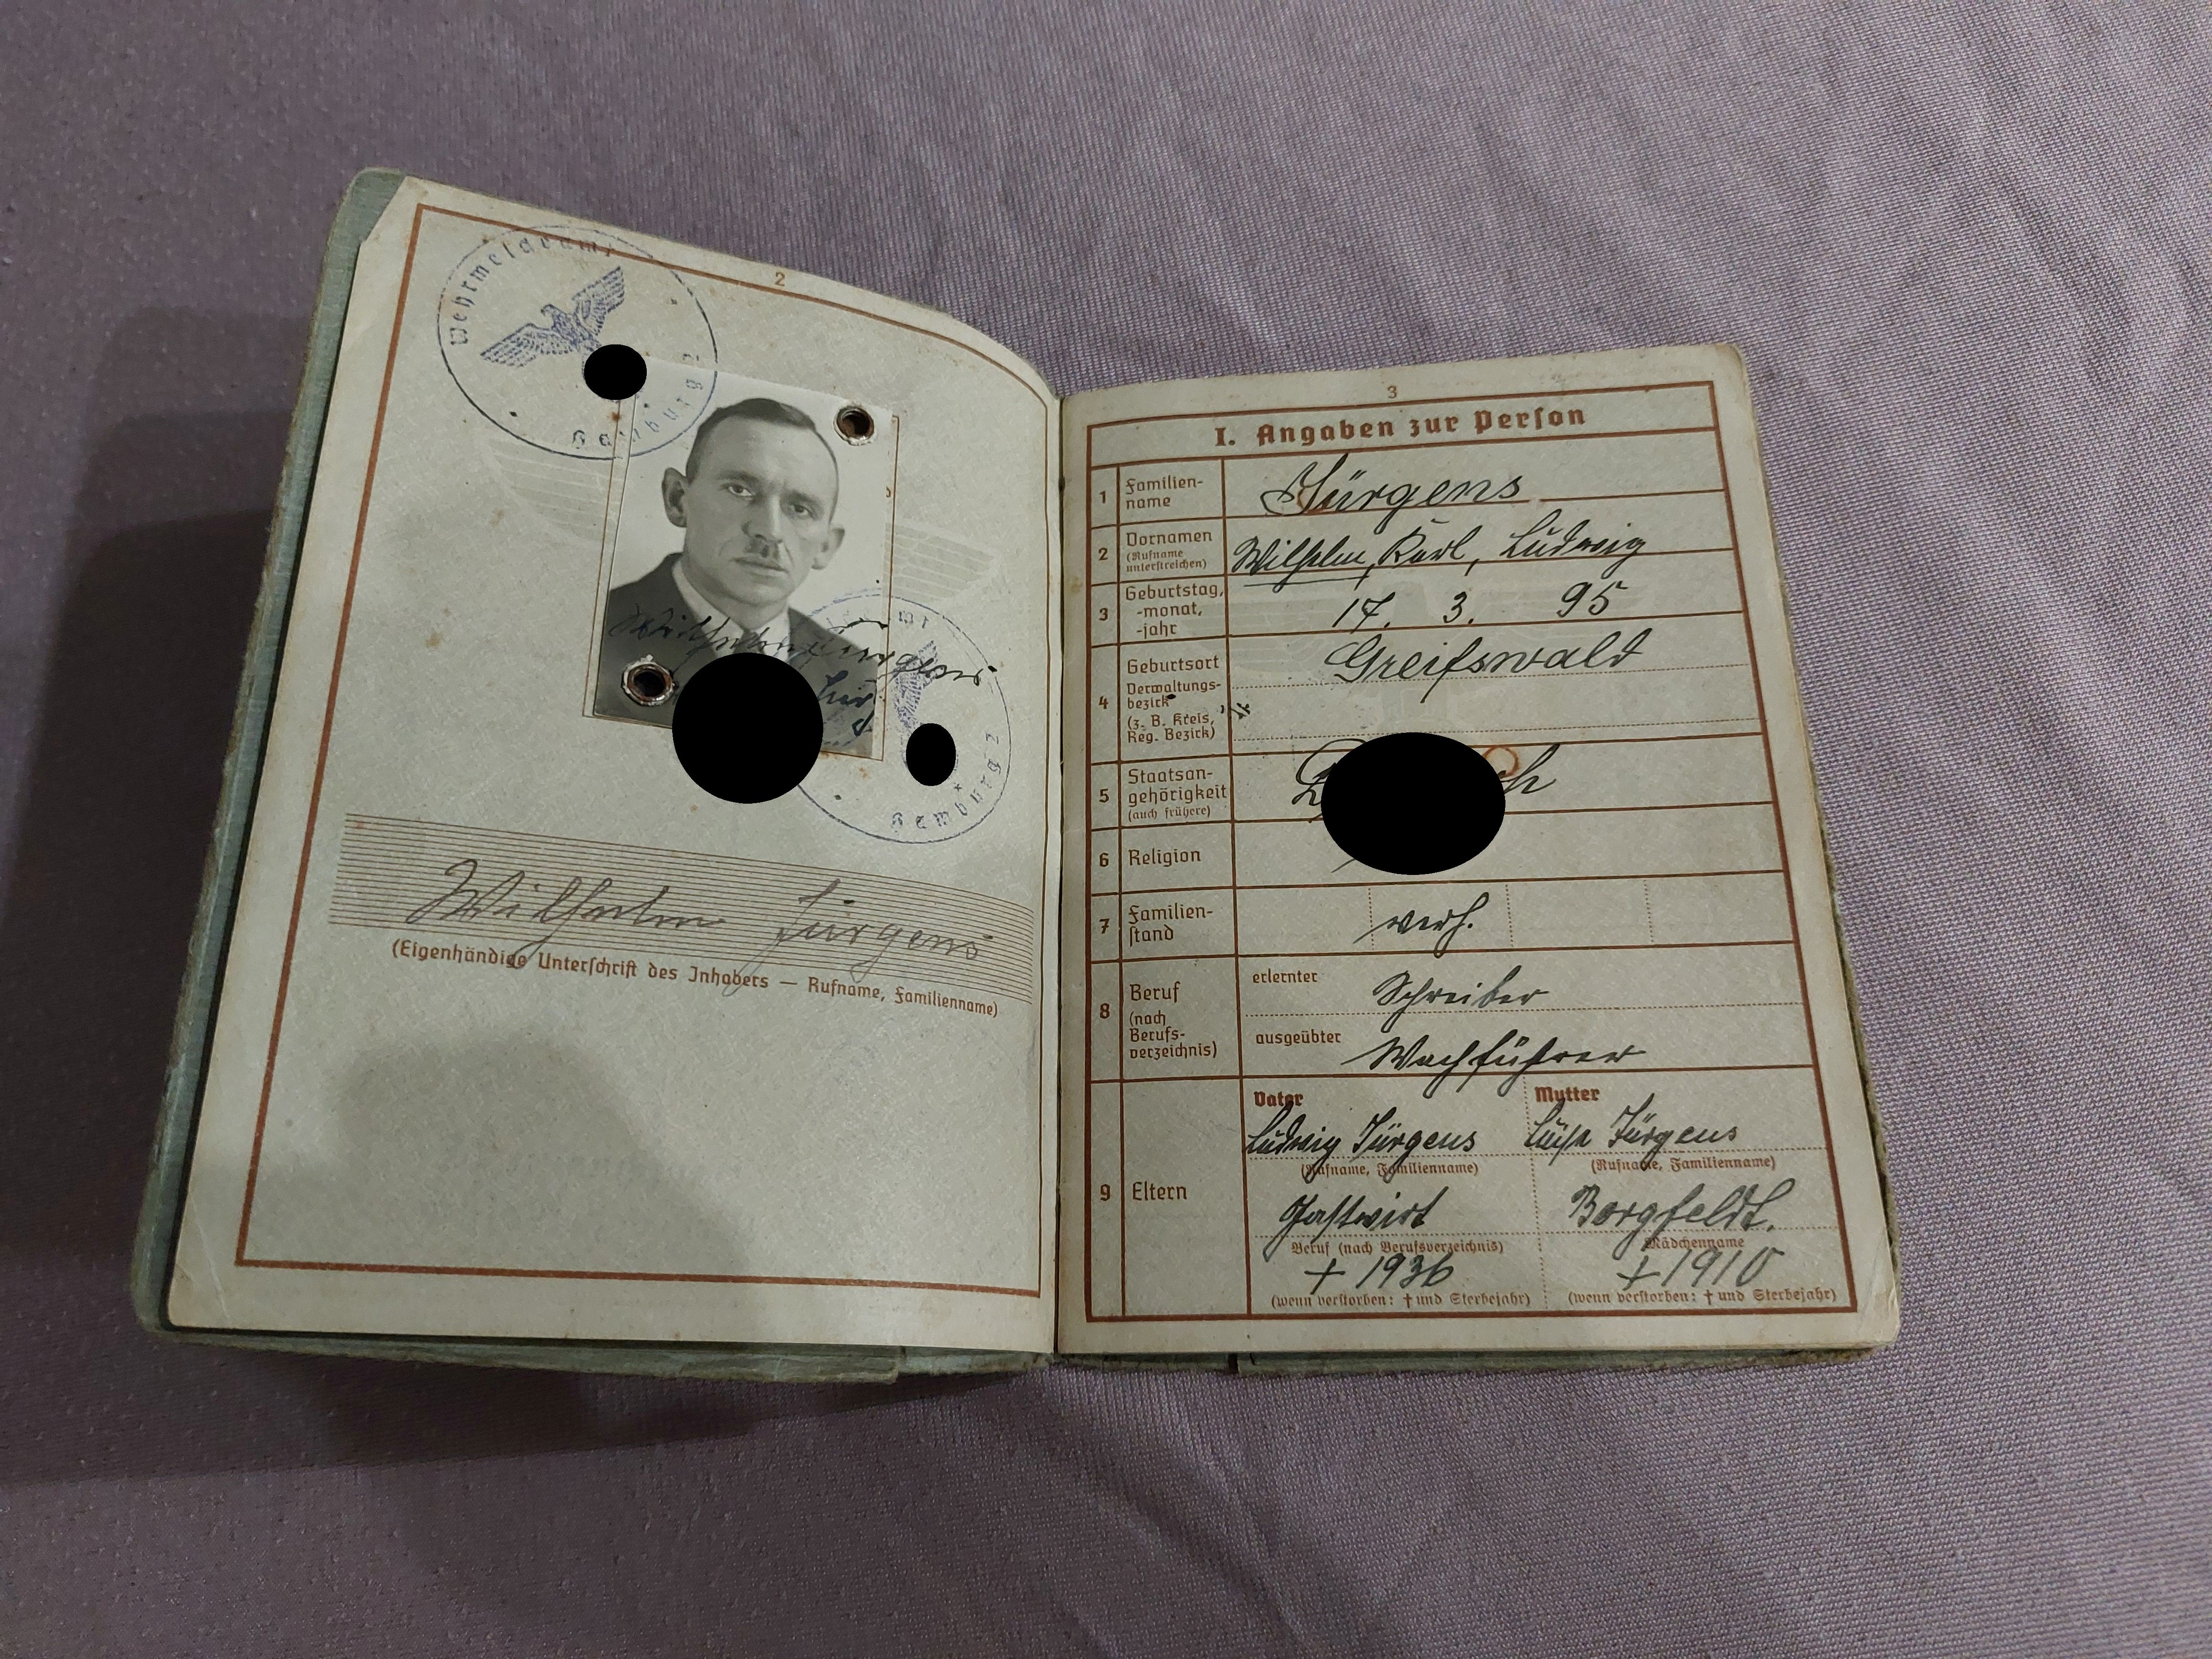 2
Wehrmeldeamt
Hamburg 2
Wilhelm Jürgens
Hamburg 2
Wilhelm Jürgens
(Eigenhändige Unterschrift des Inhabers — Rufname, Familienname)
3
I. Angaben zur Person
1 Familien-
name
Jürgens
2 Vornamen
(Rufname
unterstreichen)
Wilhelm, Karl, Ludwig
3 Geburtstag,
-monat,
-jahr
17. 3. 95
4 Geburtsort
Greifswald
Verwaltungs-
bezirk
(z. B. Kreis,
Reg. Bezirk)
5 Staatsan-
gehörigkeit
(auch frühere)
6 Religion
7 Familien-
stand
verh.
8 Beruf
(nach
Berufs-
verzeichnis)
erlernter Schreiber
ausgeübter Wachführer
9 Eltern
Vater Mutter
Ludwig Jürgens Luise Jürgens
(Rufname, Familienname) (Rufname, Familienname)
Gastwirt Borgfeldt.
Beruf (nach Berufsverzeichnis) Mädchenname
† 1936 † 1910
(wenn verstorben: † und Sterbejahr) (wenn verstorben: † und Sterbejahr)